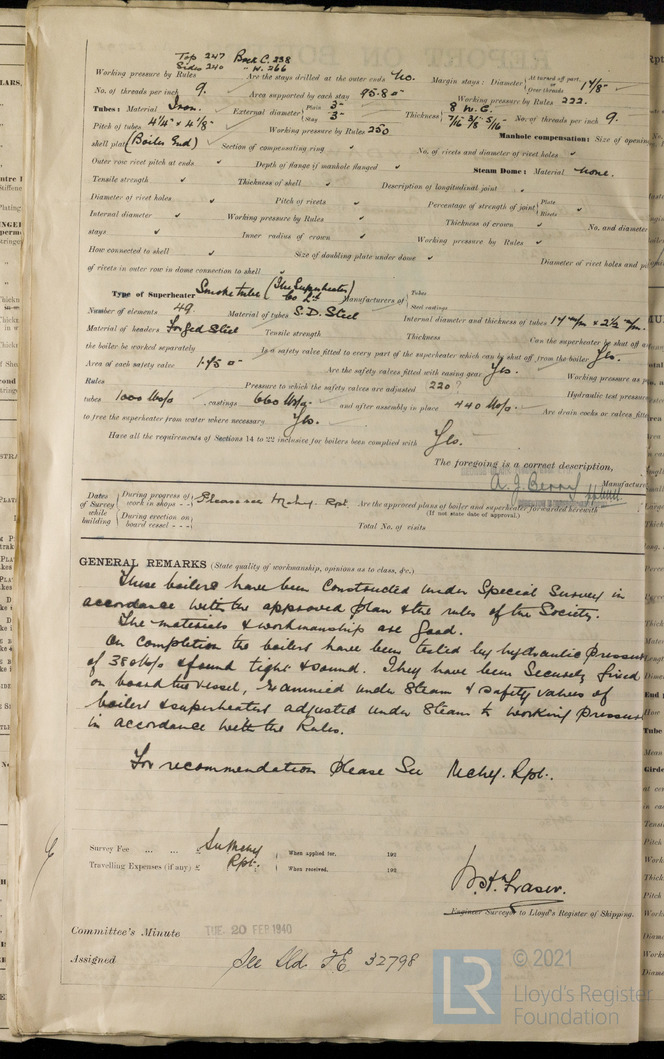 Top 247 Back C. 238
Sides 240 " W. 266
Working pressure by Rules Are the stays drilled at the outer ends No. Margin stays: Diameter { At turned off part, or Over threads 1 7/8"
No. of threads per inch 9. Area supported by each stay 95.8 Working pressure by Rules 222.
Tubes: Material Iron. External diameter { Plain 3" Stay 3" Thickness { 8 W.G. 7/16 3/8 5/16 No. of threads per inch 9.
Pitch of tubes 4 1/4" x 4 1/8" Working pressure by Rules 250 Manhole compensation: Size of opening
shell plate (Boiler End) Section of compensating ring No. of rivets and diameter of rivet holes
Outer row rivet pitch at ends Depth of flange if manhole flanged Steam Dome: Material None.
Tensile strength Thickness of shell Description of longitudinal joint
Diameter of rivet holes Pitch of rivets Percentage of strength of joint { Plate Rivets
Internal diameter Working pressure by Rules Thickness of crown No. and diameter
stays Inner radius of crown Working pressure by Rules
How connected to shell Size of doubling plate under dome Diameter of rivet holes and
of rivets in outer row in dome connection to shell
Type of Superheater Smoke tube (The Superheater Co Ltd) Manufacturers of { Tubes Steel castings
Number of elements 49 Material of tubes S.D. Steel Internal diameter and thickness of tubes 17 m/m x 2 1/2 m/m.
Material of headers Forged Steel Tensile strength Thickness Can the superheater be shut off
the boiler be worked separately Is a safety valve fitted to every part of the superheater which can be shut off from the boiler Yes.
Area of each safety valve 1.45 Are the safety valves fitted with easing gear Yes. Working pressure as
Rules Pressure to which the safety valves are adjusted 220? Hydraulic test pressure
tubes 1000 lbs/" , castings 660 lbs/" and after assembly in place 440 lbs/" Are drain cocks or valves
to free the superheater from water where necessary Yes.
Have all the requirements of Sections 14 to 22 inclusive for boilers been complied with Yes.
The foregoing is a correct description,
A. J. Berry Manufacturer
Dates of Survey while building { During progress of work in shops - - Please see Mchy. Rpt. Are the approved plans of boiler and superheater forwarded herewith
(If not state date of approval.)
During erection on board vessel - - - Total No. of visits
GENERAL REMARKS (State quality of workmanship, opinions as to class, &c.)
These boilers have been Constructed under Special Survey in
accordance with the approved plan & the rules of the Society.
The materials & workmanship are good.
On completion the boilers have been tested by hydraulic pressure
of 380 lbs/" & found tight & sound. They have been Securely fixed
on board the vessel, examined under steam & safety valves of
boilers & superheaters adjusted under Steam to working pressure
in accordance with the Rules.
For recommendation please see Mchy. Rpt.
Survey Fee ... ... See Mchy { When applied for, 192
Travelling Expenses (if any) £ Rpt. { When received, 192
W. A. Fraser.
Engineer Surveyor to Lloyd's Register of Shipping.
Committee's Minute TUE. 20 FEB 1940
Assigned See Lld. F.E. 32798
LR
© 2021
Lloyd's Register
Foundation